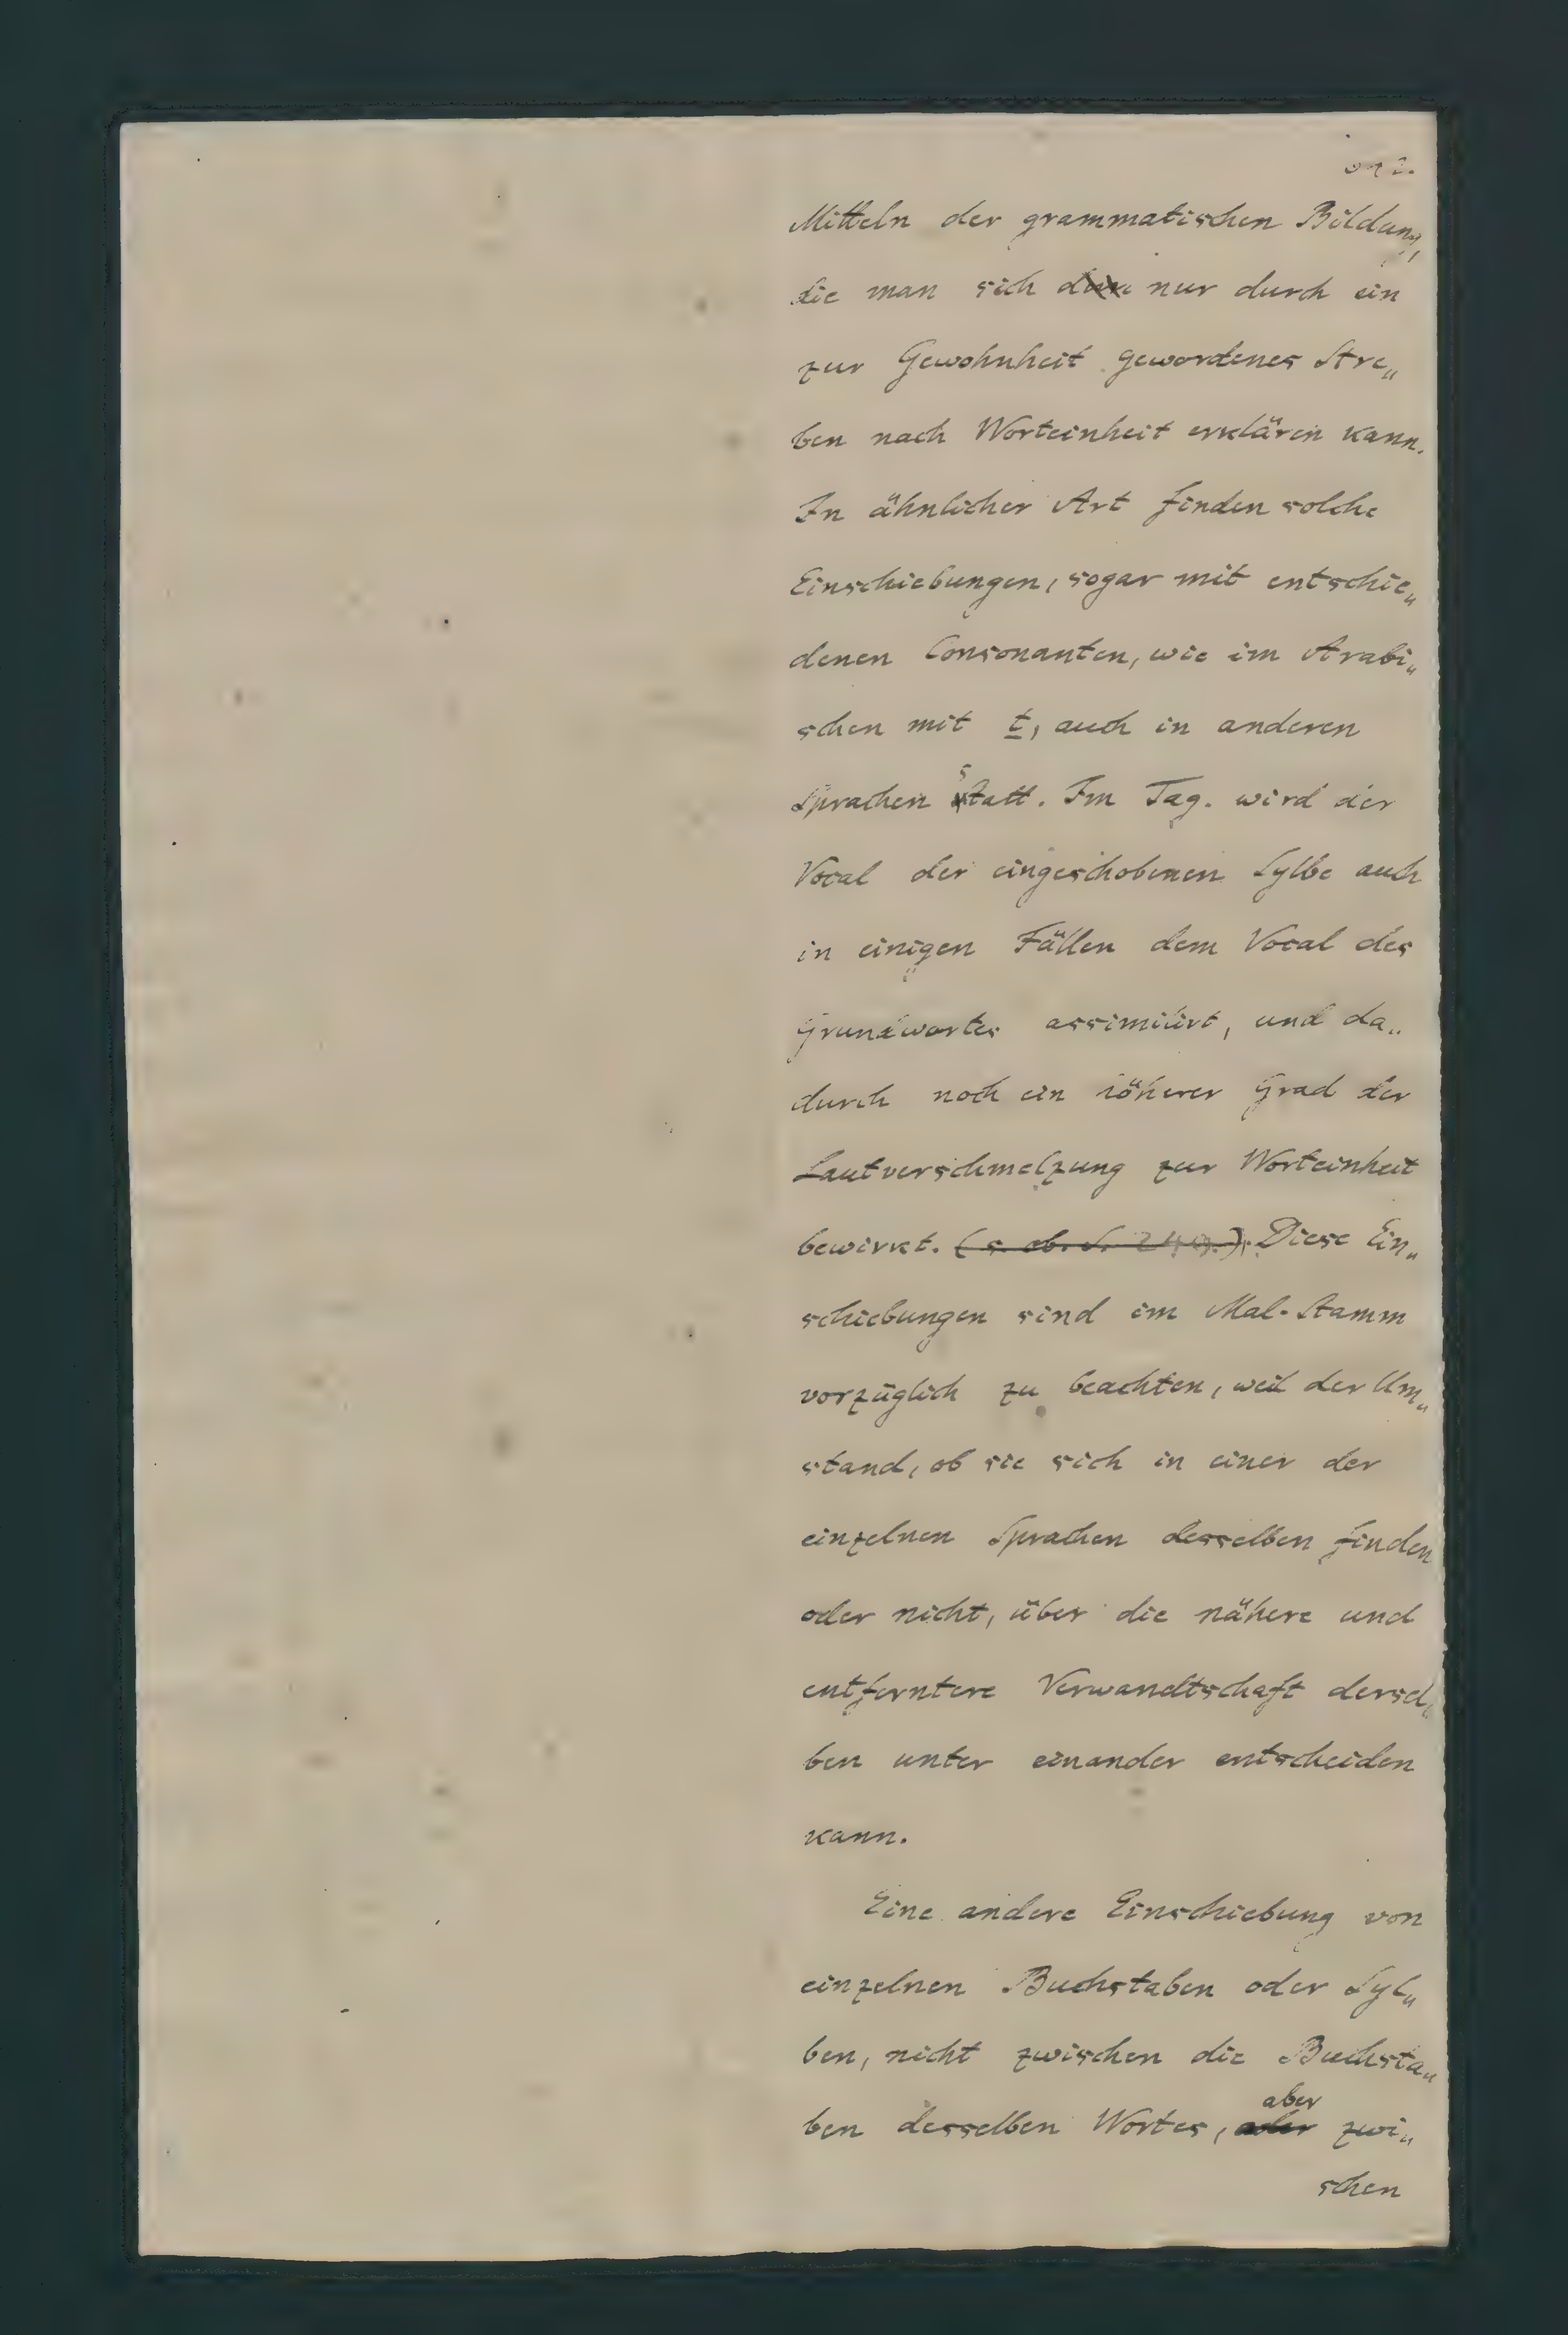 Mitteln der grammatischen Bildung,
die man sich nur durch ein
zur Gewohnheit gewordenes Stre„
ben nach Worteinheit erklären kann.
In ähnlicher Art finden solche
Einschiebungen, sogar mit entschie„
denen Consonanten, wie im Arabi„
schen mit t, auch in anderen
Sprachen statt. Im Tag. wird der
Vocal der eingeschobenen Sylbe auch
in einigen Fällen dem Vocal des
Grundwortes assimilirt, und da„
durch noch ein höherer Grad der
Lautverschmelzung zur Worteinheit
bewirkt. (s. ob. S. 249.). Diese Ein„
schiebungen sind im Mal-Stamm
vorzüglich zu beachten, weil der Um„
stand, ob sie sich in einer der
einzelnen Sprachen desselben finden
oder nicht, über die nähere und
entferntere Verwandtschaft dersel„
ben unter einander entscheiden
kann.
Eine andere Einschiebung von
einzelnen Buchstaben oder Syl„
ben, nicht zwischen die Buchsta„
ben desselben Wortes, aber zwi„
schen